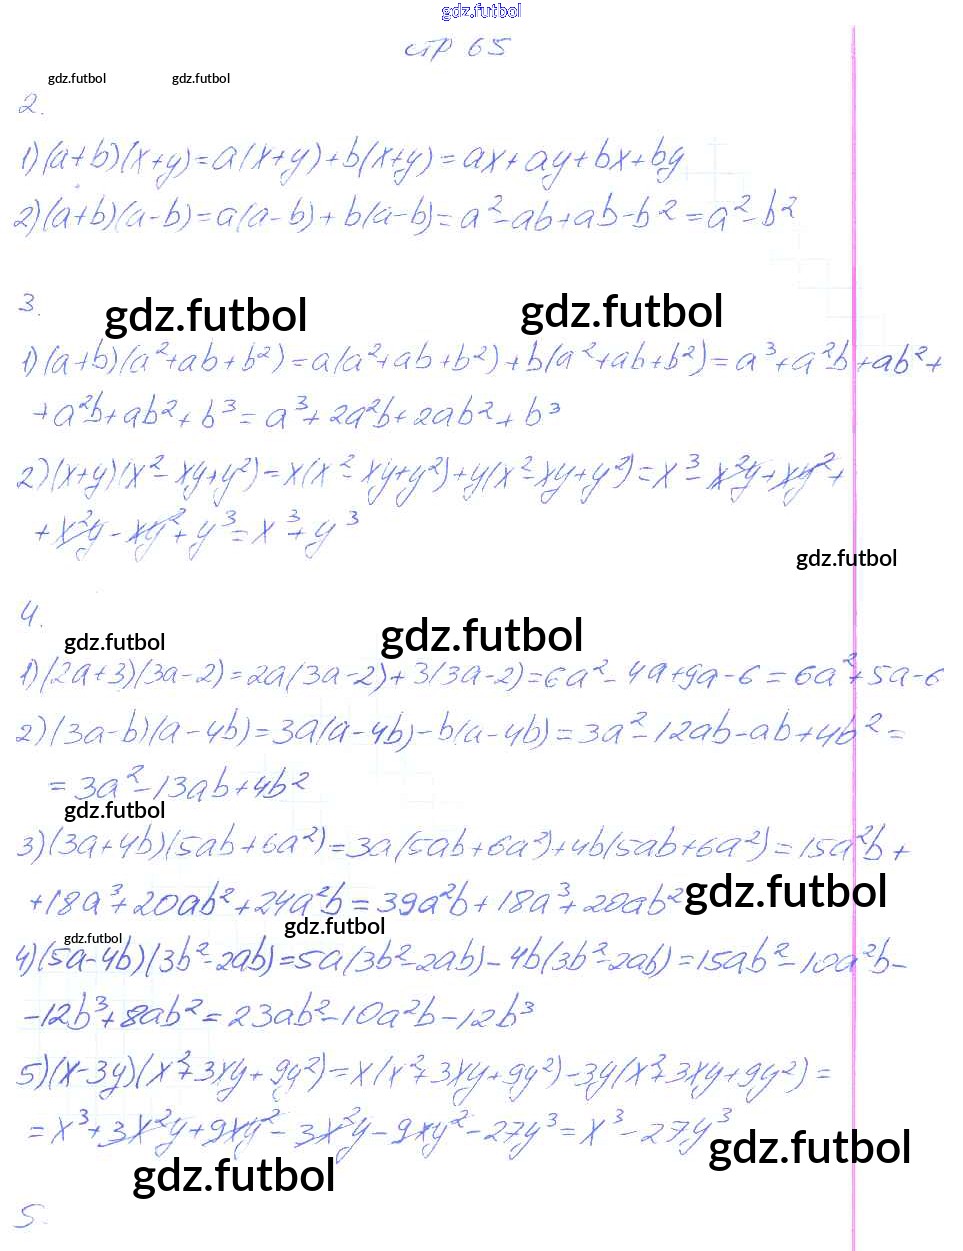 gdz.futbol
стр 65
gdz.futbol gdz.futbol
2.
1) (a+b)(x+y)=a(x+y)+b(x+y)=ax+ay+bx+by
2) (a+b)(a-b)=a(a-b)+b(a-b)=a²-ab+ab-b²=a²-b²
3.
gdz.futbol gdz.futbol
1) (a+b)(a²+ab+b²)=a(a²+ab+b²)+b(a²+ab+b²)=a³+a²b+ab²+
+a²b+ab²+b³=a³+2a²b+2ab²+b³
2) (x+y)(x²-xy+y²)=x(x²-xy+y²)+y(x²-xy+y²)=x³-x²y+xy²+
+x²y-xy²+y³=x³+y³
gdz.futbol
4.
gdz.futbol gdz.futbol
1) (2a+3)(3a-2)=2a(3a-2)+3(3a-2)=6a²-4a+9a-6=6a²+5a-6
2) (3a-b)(a-4b)=3a(a-4b)-b(a-4b)=3a²-12ab-ab+4b²=
=3a²-13ab+4b²
gdz.futbol
3) (3a+4b)(5ab+6a²)=3a(5ab+6a²)+4b(5ab+6a²)=15a²b+
+18a³+20ab²+24a²b=39a²b+18a³+20ab²
gdz.futbol
gdz.futbol
gdz.futbol
4) (5a-4b)(3b²-2ab)=5a(3b²-2ab)-4b(3b²-2ab)=15ab²-10a²b-
-12b³+8ab²=23ab²-10a²b-12b³
5) (x-3y)(x²+3xy+9y²)=x(x²+3xy+9y²)-3y(x²+3xy+9y²)=
=x³+3x²y+9xy²-3x²y-9xy²-27y³=x³-27y³
gdz.futbol
gdz.futbol
5.